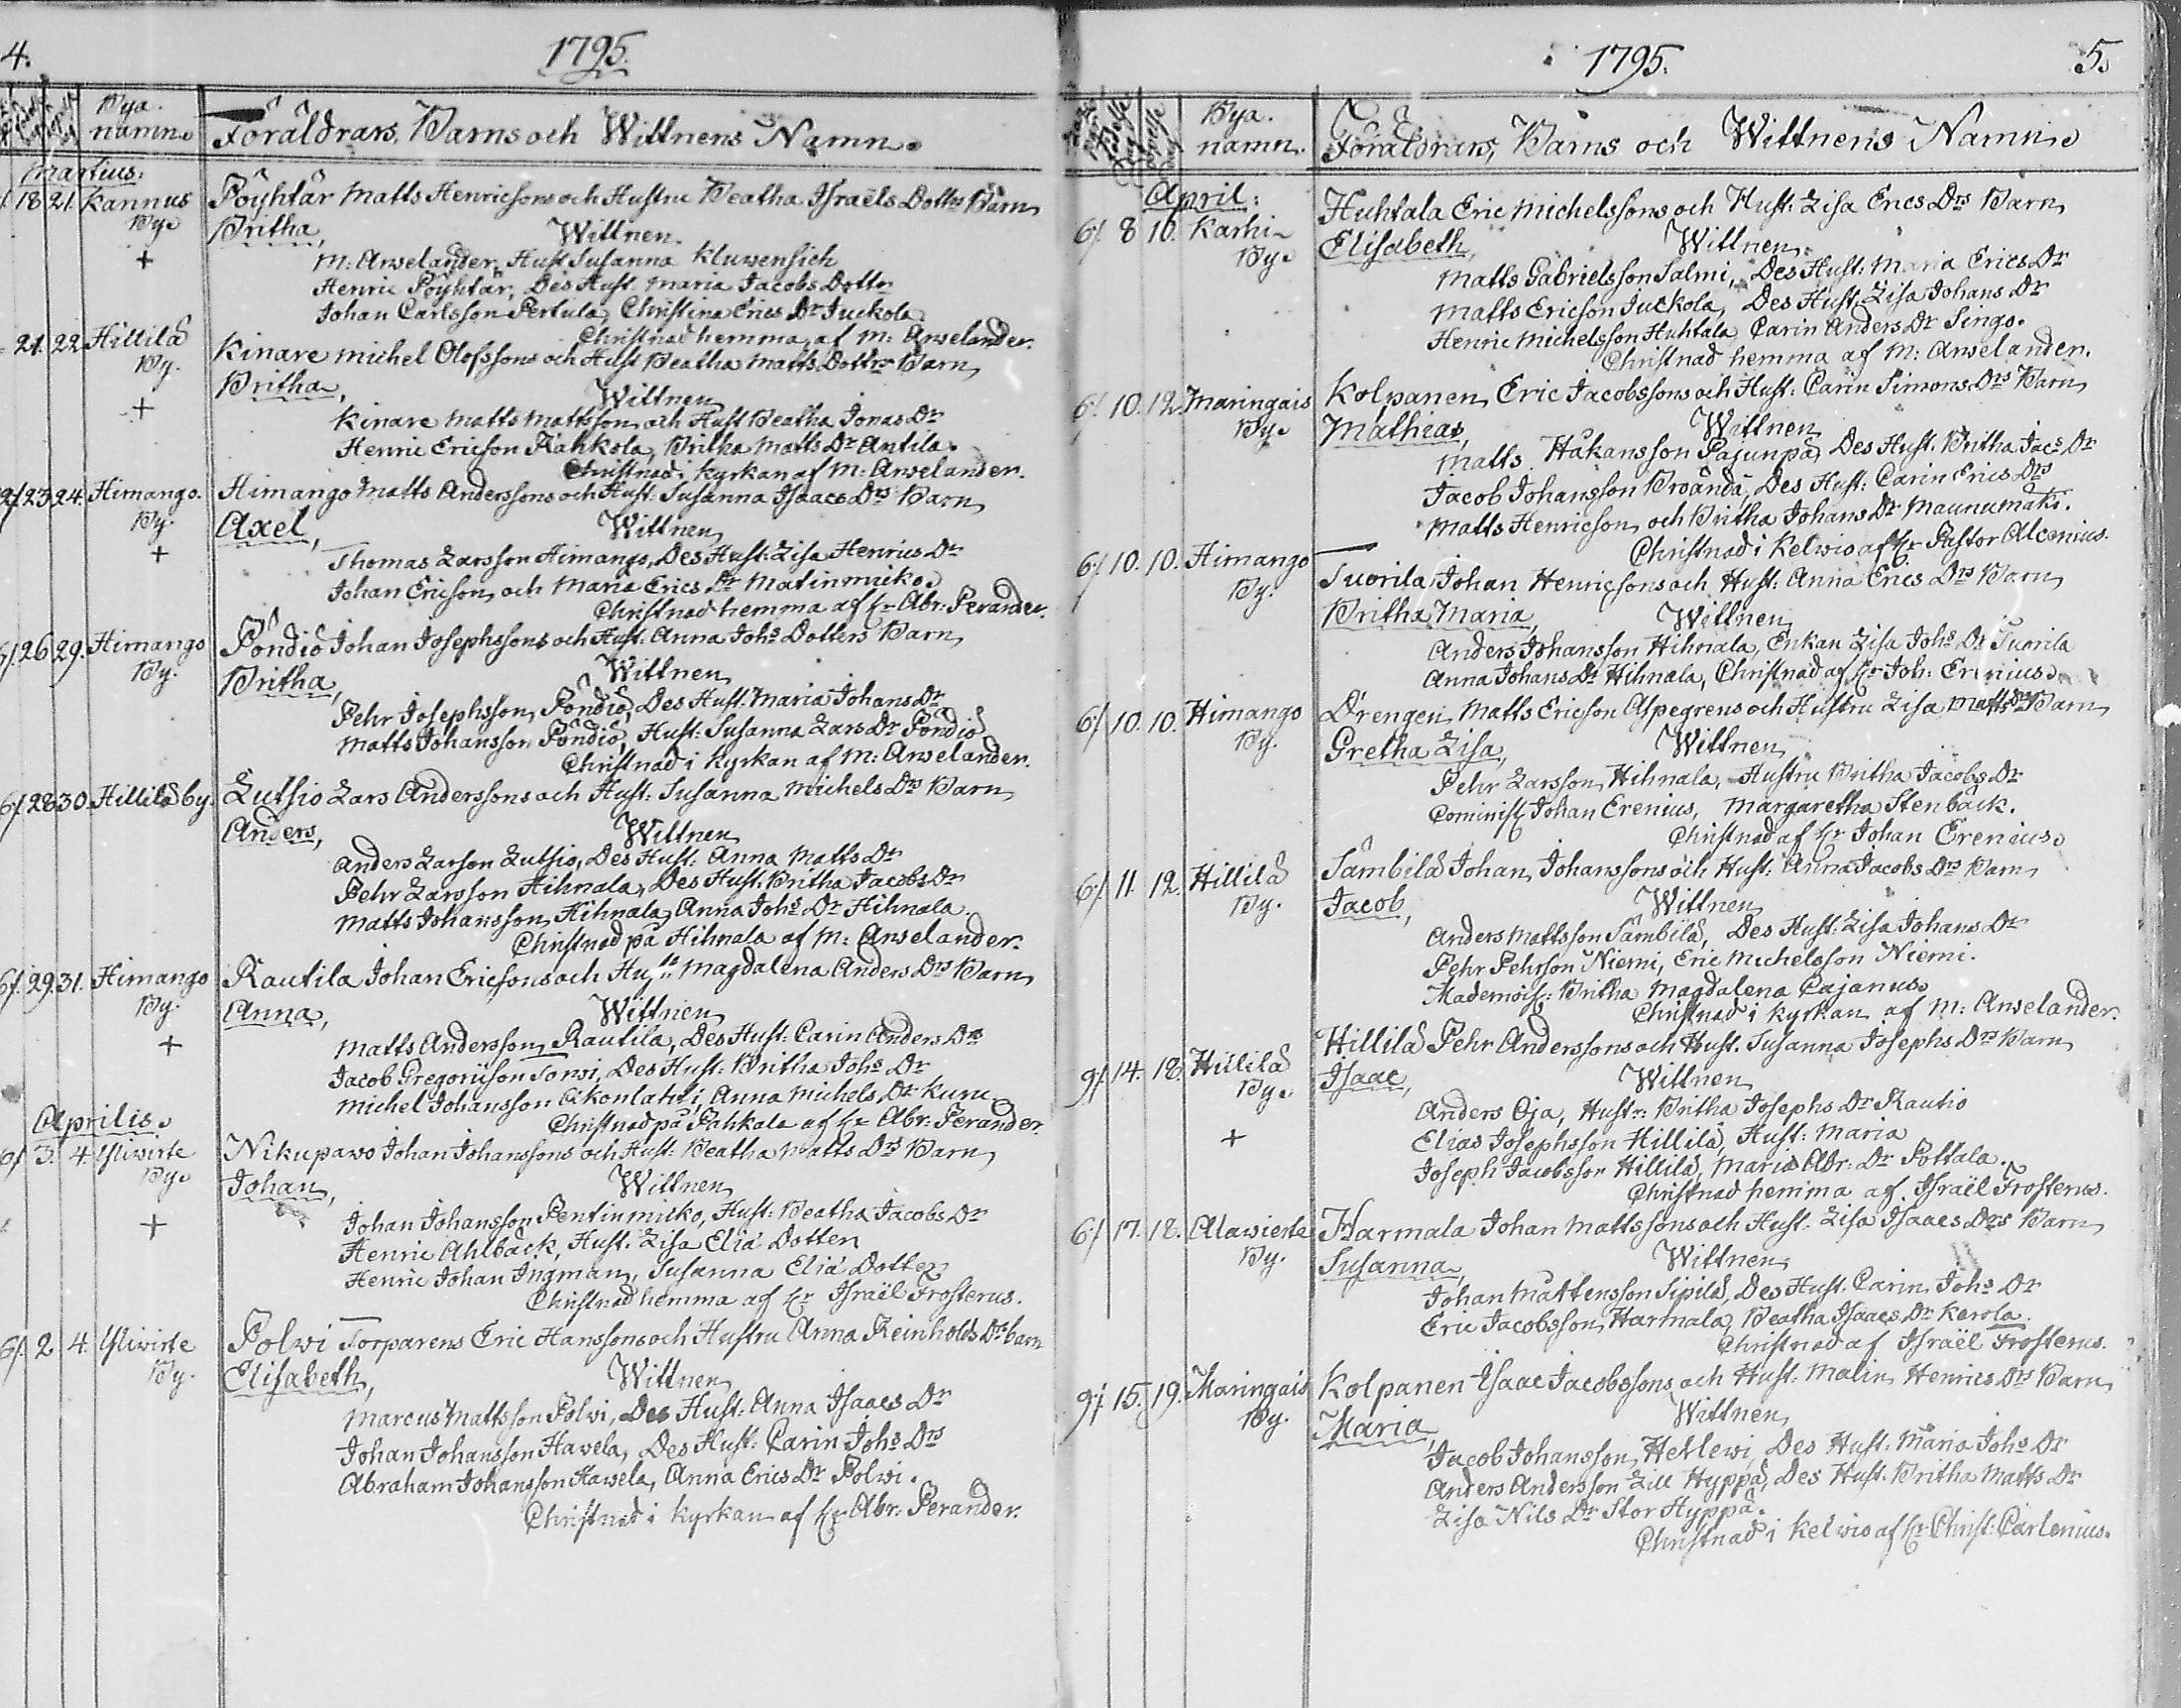 4.
1795.
Bya namn.
Föräldrars, Barns och Wittnens Namn.
Martius.
18 21. Kannus By. Pöyhtär Matts Henricsons och Hustru Beatha Israëls Dotters Barn
Britha, Wittnen
+ M: Arwelander, Hust Susanna Kluwensich
Henric Pöyhtär, Des Hust. Maria Jacobs Dotter
Johan Carlsson Pertula, Christina Erics Dr Juckola
Christnad hemma af M: Arwelander.
21. 22 Hillilä By. Kinare Michel Olofssons och Hust Beatha Matts Dottrs Barn
Britha, Wittnen
+ Kinare Matts Mattsson och Hust Beatha Jonas Dr
Henric Ericson Kahkola, Britha Matts Dr Antila.
Christnad i kyrkan af M: Arwelander.
23 24. Himango By. Himango Matts Anderssons och Hust: Susanna Isaacs Drs Barn
Axel, Wittnen
+ Thomas Larsson Himango, Des Hust: Lisa Henrics Dr
Johan Ericson och Maria Erics Dr Matinmicko.
Christnad hemma af Hr Abr: Perander.
6/. 26 29. Himango By. Pöndiö Johan Josephssons och Hust. Anna Johs Dotters Barn
Britha, Wittnen
Pehr Josephsson Pöndiö, Des Hust. Maria Johans Dr
Matts Johansson Pöndiö, Hust: Susanna Lars Dr Pöndiö
Christnad i kyrkan af M: Arwelander.
6/. 28 30. Hillilä by. Lutsio Lars Anderssons och Hust: Susanna Michels Drs Barn
Anders, Wittnen
Anders Larson Lutsio, Des Hust: Anna Matts Dr
Pehr Larsson Hihnala, Des Hust. Britha Jacobs Dr
Matts Johansson Hihnala, Anna Johs Dr Hihnala.
Christnad på Hihnala af M: Arwelander.
6/. 29. 31. Himango By. Rautila Johan Ericsons och Hust: Magdalena Anders Drs Barn
Anna, Wittnen
+ Matts Andersson Rautila, Des Hust: Carin Anders Drs
Jacob Gregoriison Torwi, Des Hust: Britha Johs Dr
Michel Johansson Ckonlahti, Anna Michels Dr Kuru
Christnad på Pahkala af Hr Abr: Perander.
Aprilis.
6/ 3. 4. Yliwirte By. Nikupawo Johan Johanssons och Hust: Beatha Matts Drs Barn
Johan, Wittnen
+ Johan Johansson Pentinmicko, Hust: Beatha Jacobs Dr
Henric Ahlbäck, Hust. Lisa Eliä Dotter
Henric Johan Ingman, Susanna Eliä Dotter
Christnad hemma af Hr Israël Frosterus.
6/. 2 4. Yliwirte By. Polwi Torparens Eric Hanssons och Hustru Anna Reinholds Drs barn
Elisabeth, Wittnen
Marcus Mattsson Polwi, Des Hust: Anna Isaacs Dr
Johan Johansson Hawela, Des Hust: Carin Johs Drs
Abraham Johansson Hawela, Anna Erics Dr Polwi.
Christnad i kyrkan af Hr Abr: Perander.
1795.
5.
Bya namn.
Föräldrars, Barns och Wittnens Namn.
April:
6/. 8 10. Karhi By. Huhtala Eric Michelssons och Hust: Lisa Erics Drs Barn
Elisabeth, Wittnen
Matts Gabrielsson Salmi, Des Hust: Maria Erics Dr
Matts Ericson Juckola, Des Hust: Lisa Johans Dr
Henric Michelsson Huhtala, Carin Anders Dr Singo.
Christnad hemma af M: Arwelander.
6/. 10. 12. Maringais By. Kolpanen Eric Jacobssons och Hust: Carin Simons Drs Barn
Mathias, Wittnen
Matts Håkansson Pajunpä, Des Hust. Britha Jacs Dr
Jacob Johansson Broända, Des Hust: Carin Erics Drs
Matts Henricson och Britha Johans Dr Maunumäki.
Christnad i Kelwio af Hr Pastor Alcenius.
6/. 10. 10. Himango By. Tuorila Johan Henricsons och Hust: Anna Erics Drs Barn
Britha Maria, Wittnen
Anders Johansson Hihnala, Enkan Lisa Johs Dr Tuorila
Anna Johans Dr Hihnala, Christnad af Hr Joh: Erenius.
6/. 10. 10. Himango By. Drengen Matts Ericson Aspegrens och Hustru Lisa Matts Drs Barn
Gretha Lisa, Wittnen
Pehr Larsson Hihnala, Hustru Britha Jacobs Dr
Cominist Johan Erenius, Margaretha Stenbäck.
Christnad af Hr Johan Erenius.
6/. 11. 12. Hillilä By. Sämbilä Johan Johanssons och Hust: Anna Jacobs Drs Barn
Jacob, Wittnen
Anders Mattsson Sämbilä, Des Hust: Lisa Johans Dr
Pehr Pehrson Niemi, Eric Michelsson Niemi.
Mademois: Britha Magdalena Cajanus.
Christnad i kyrkan af M: Arwelander.
9/. 14. 18. Hillilä By. Hillilä Pehr Anderssons och Hust. Susanna Josephs Drs Barn
Isaac, Wittnen
Anders Oja, Hustr: Britha Josephs Dr Rautio
+ Elias Josephsson Hillilä, Hust: Maria
Joseph Jacobsson Hillilä, Maria Abr: Dr Pottala.
Christnad hemma af Israël Frosterus.
6/. 17. 18. Alawierte By. Harmala Johan Mattssons och Hust. Lisa Isaacs Drs Barn
Susanna, Wittnen
Johan Mattensson Sipilä, Des Hust. Carin Johs Dr
Eric Jacobsson Harmala, Beatha Isaacs Dr Kerola.
Christnad af Israël Frosterus.
9/. 15. 19. Maringais By. Kolpanen Isaac Jacobssons och Hust: Malin Henrics Drs Barn
Maria, Wittnen
Jacob Johansson Hetlewi, Des Hust: Maria Johs Dr
Anders Andersson Lill Hyppä, Des Hust. Britha Matts Dr
Lisa Nils Dr Stor Hyppä.
Christnad i Kelwio af Hr Christ: Carlenius.